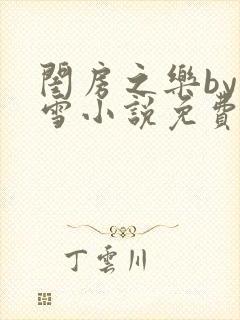 閨房之樂by
雪小說免費
丁雲川